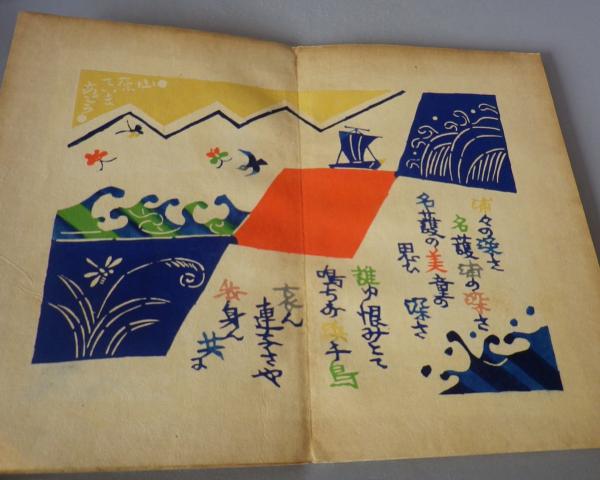 浦々の深さ
名護浦の深さ
名護の美童の
思い 深さ
誰ゆ恨みとて
浜千鳥
哀ん
連なさや
我身ん
共に
山原